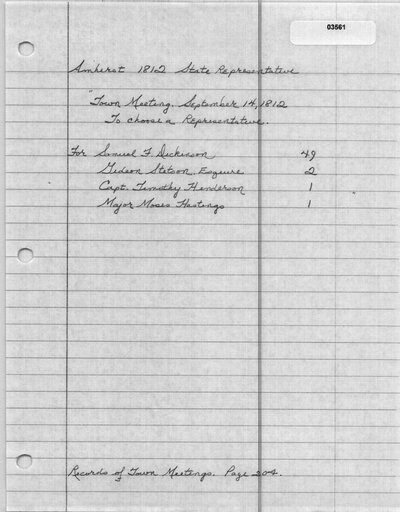 03561
Amherst 1812 State Representative
"Town Meeting. September 14, 1812
To choose a Representative.
For Samuel F. Dickinson 49
Gideon Stetson, Esquire 2
Capt. Timothy Henderson 1
Major Moses Hastings 1
Records of Town Meetings. Page 204.